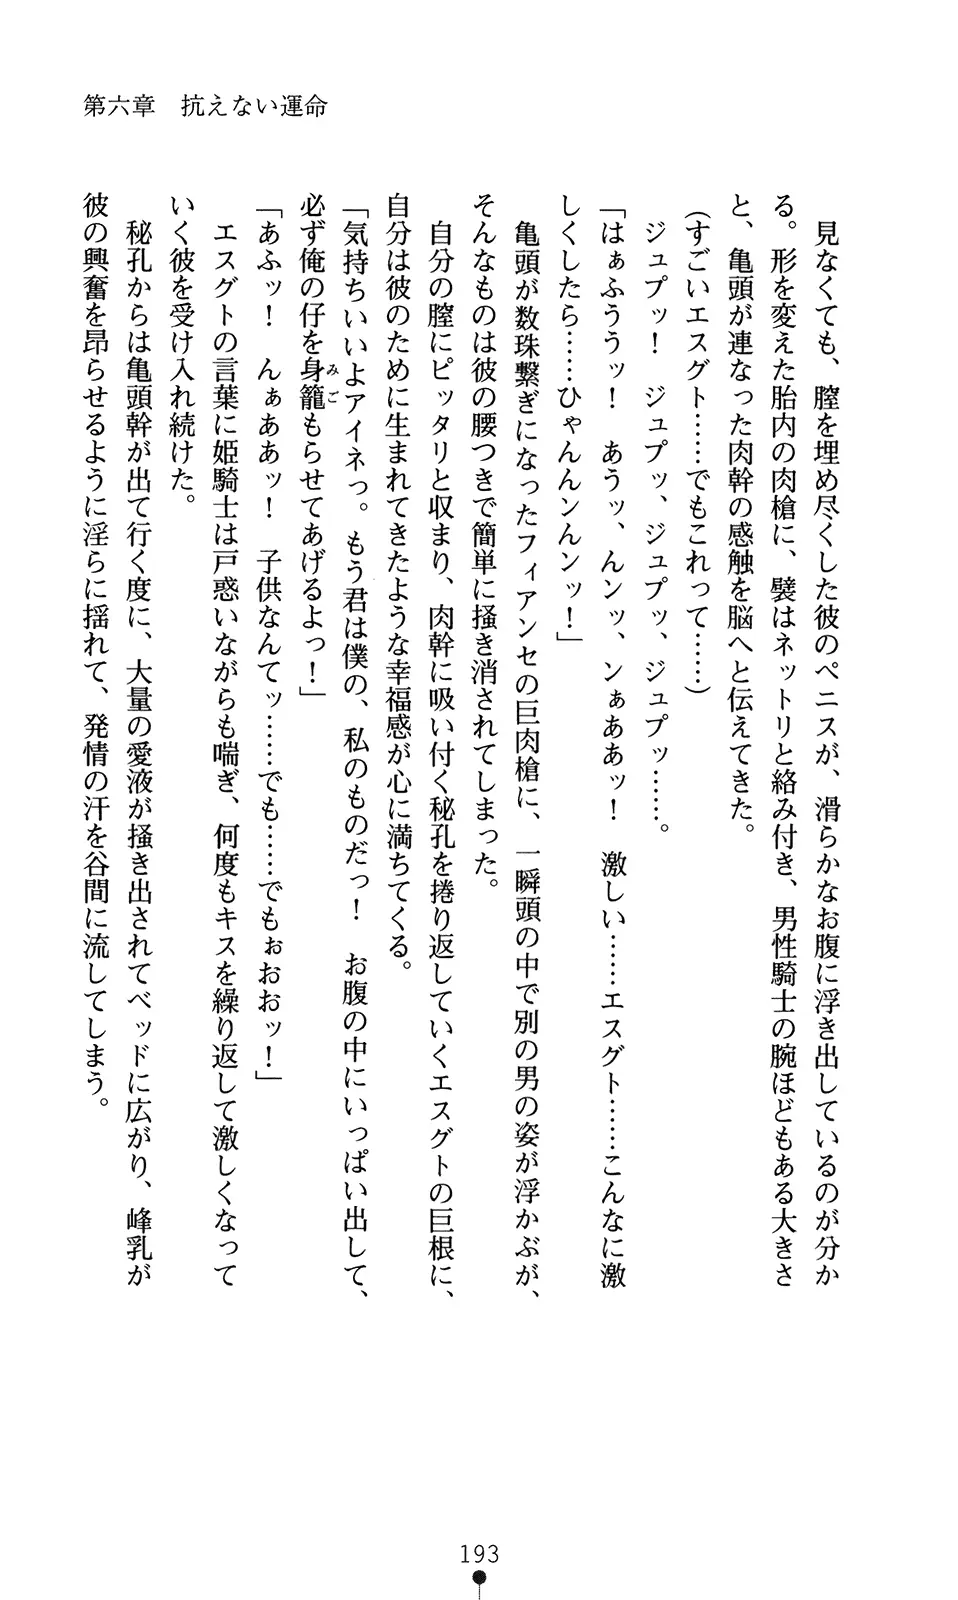 第六章　抗えない運命
　見なくても、膣を埋め尽くした彼のペニスが、滑らかなお腹に浮き出しているのが分か
る。形を変えた胎内の肉槍に、襞はネットリと絡み付き、男性騎士の腕ほどもある大きさ
と、亀頭が連なった肉幹の感触を脳へと伝えてきた。
(すごいエスグト……でもこれって……)
　ジュプッ！　ジュプッ、ジュプッ、ジュプッ……。
「はぁふううッ！　あうッ、んンッ、ンぁああッ！　激しい……エスグト……こんなに激
しくしたら……ひゃんんンんンッ！」
　亀頭が数珠繋ぎになったフィアンセの巨肉槍に、一瞬頭の中で別の男の姿が浮かぶが、
そんなものは彼の腰つきで簡単に掻き消されてしまった。
　自分の膣にピッタリと収まり、肉幹に吸い付く秘孔を捲り返していくエスグトの巨根に、
自分は彼のために生まれてきたような幸福感が心に満ちてくる。
「気持ちいいよアイネっ。もう君は僕の、私のものだっ！　お腹の中にいっぱい出して、
必ず俺の仔を身籠もらせてあげるよっ！」
みご
「あふッ！　んぁああッ！　子供なんてッ……でも……でもぉおおッ！」
　エスグトの言葉に姫騎士は戸惑いながらも喘ぎ、何度もキスを繰り返して激しくなって
いく彼を受け入れ続けた。
　秘孔からは亀頭幹が出て行く度に、大量の愛液が掻き出されてベッドに広がり、峰乳が
彼の興奮を昂らせるように淫らに揺れて、発情の汗を谷間に流してしまう。
193